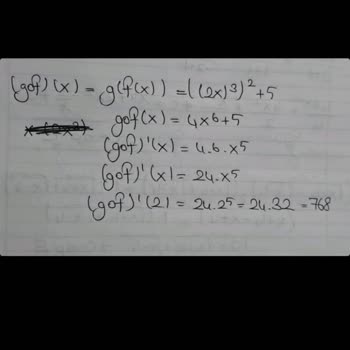 (gof)(x) = g(f(x)) = ((2x)³)² + 5
gof(x) = 4x⁶ + 5
(gof)'(x) = 4.6.x⁵
(gof)'(x) = 24.x⁵
(gof)'(2) = 24.2⁵ = 24.32 = 768